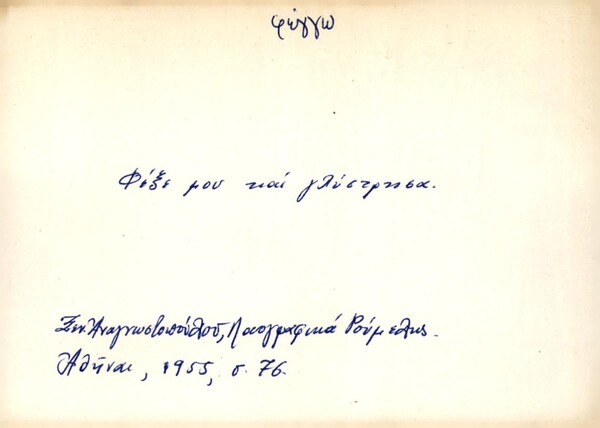 φέγγω
Φέξε μου καί γλύστρησα.
Ξεν. Αναγνωστοπούλου, Λαογραφικά Ρούμελης.
Αθήναι, 1955, σ. 76.